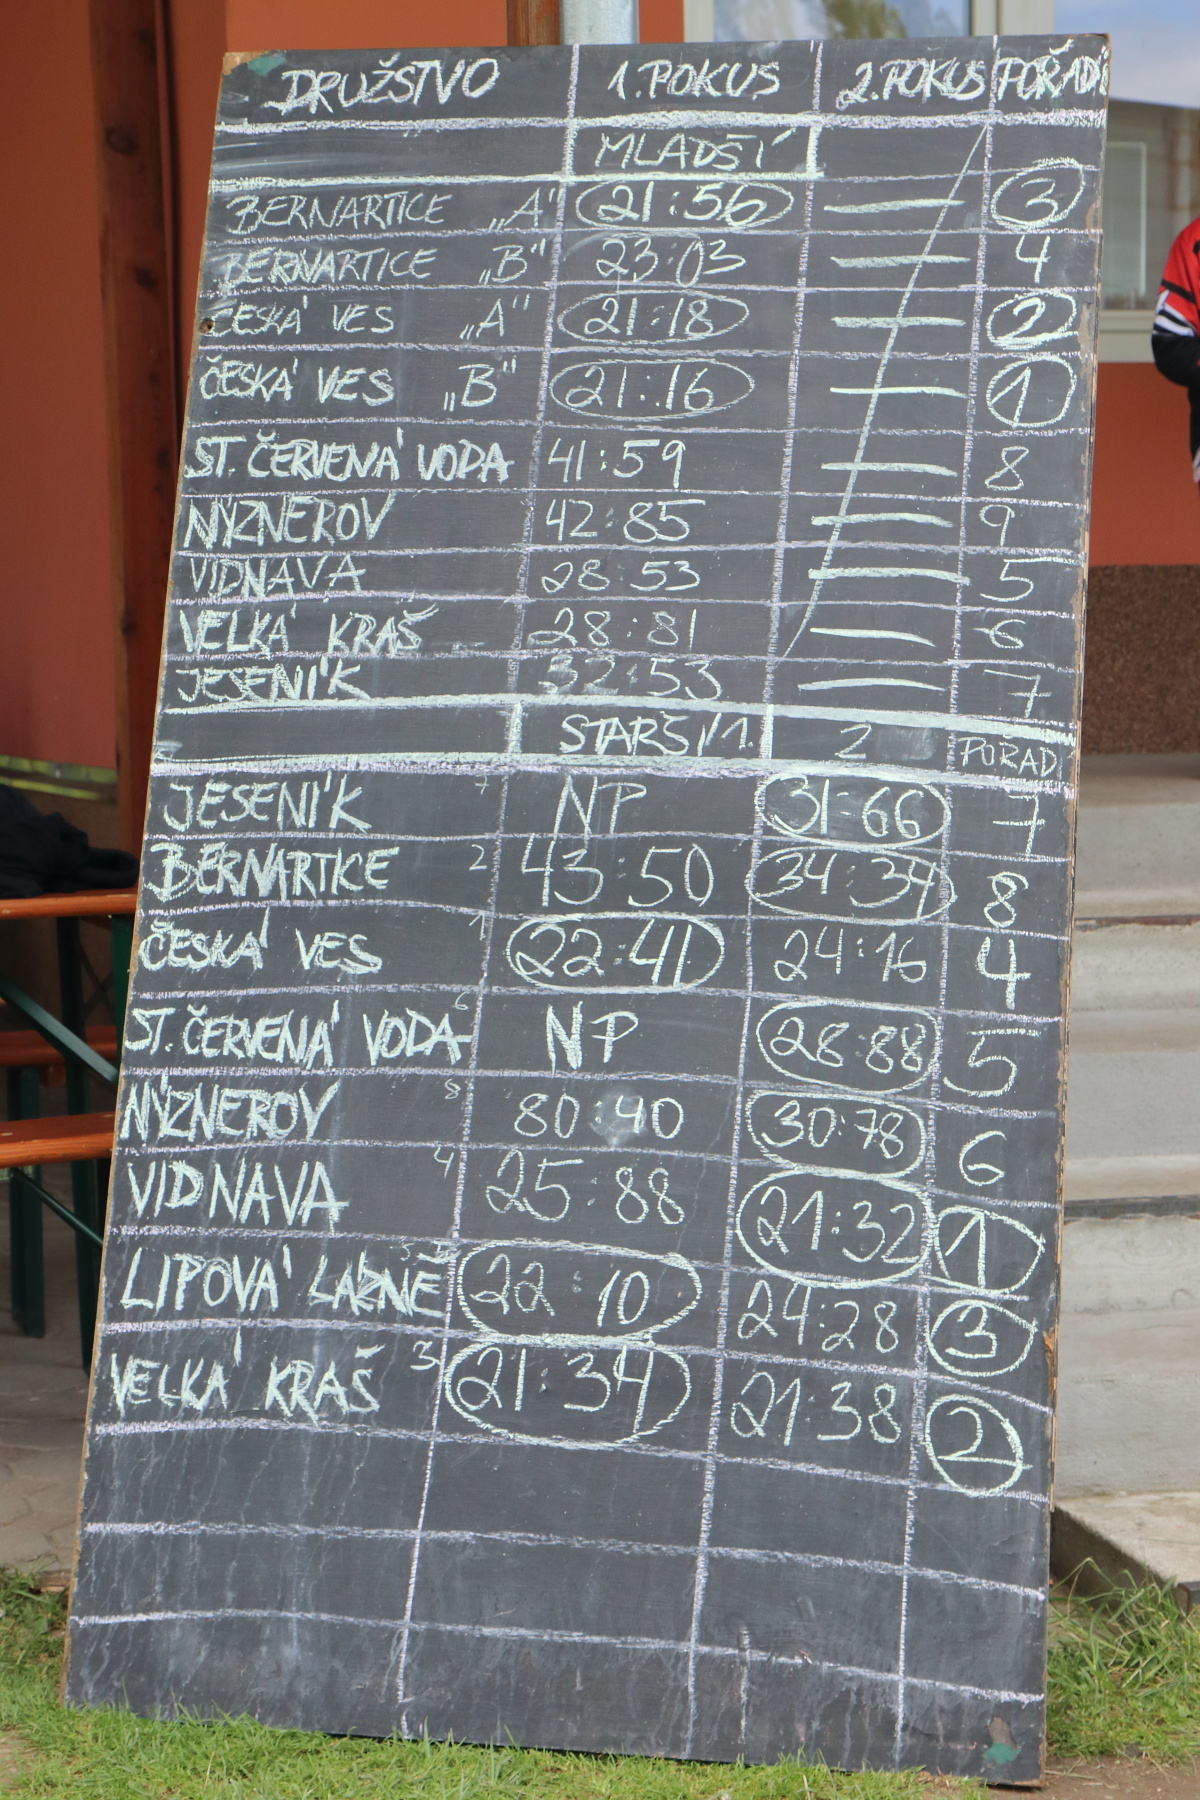 DRUŽSTVO 1.POKUS 2.POKUS POŘADÍ
MLADŠÍ
BERNARTICE „A" 21:56 — 3
BERNARTICE „B" 23:03 — 4
ČESKÁ VES „A" 21:18 — 2
ČESKÁ VES „B" 21:16 — 1
ST. ČERVENÁ VODA 41:59 — 8
NÝZNEROV 42:85 — 9
VIDNAVA 28:53 — 5
VELKÁ KRAŠ 28:81 — 6
JESENÍK 32:53 — 7
STARŠÍ 1. 2 POŘAD
JESENÍK 7 NP 31:66 7
BERNARTICE 2 43:50 34:39 8
ČESKÁ VES 1 22:41 24:16 4
ST. ČERVENÁ VODA 6 NP 28:88 5
NÝZNEROV 8 80:40 30:78 6
VIDNAVA 4 25:88 21:32 1
LIPOVÁ LÁZNĚ 5 22:10 24:28 3
VELKÁ KRAŠ 3 21:34 21:38 2